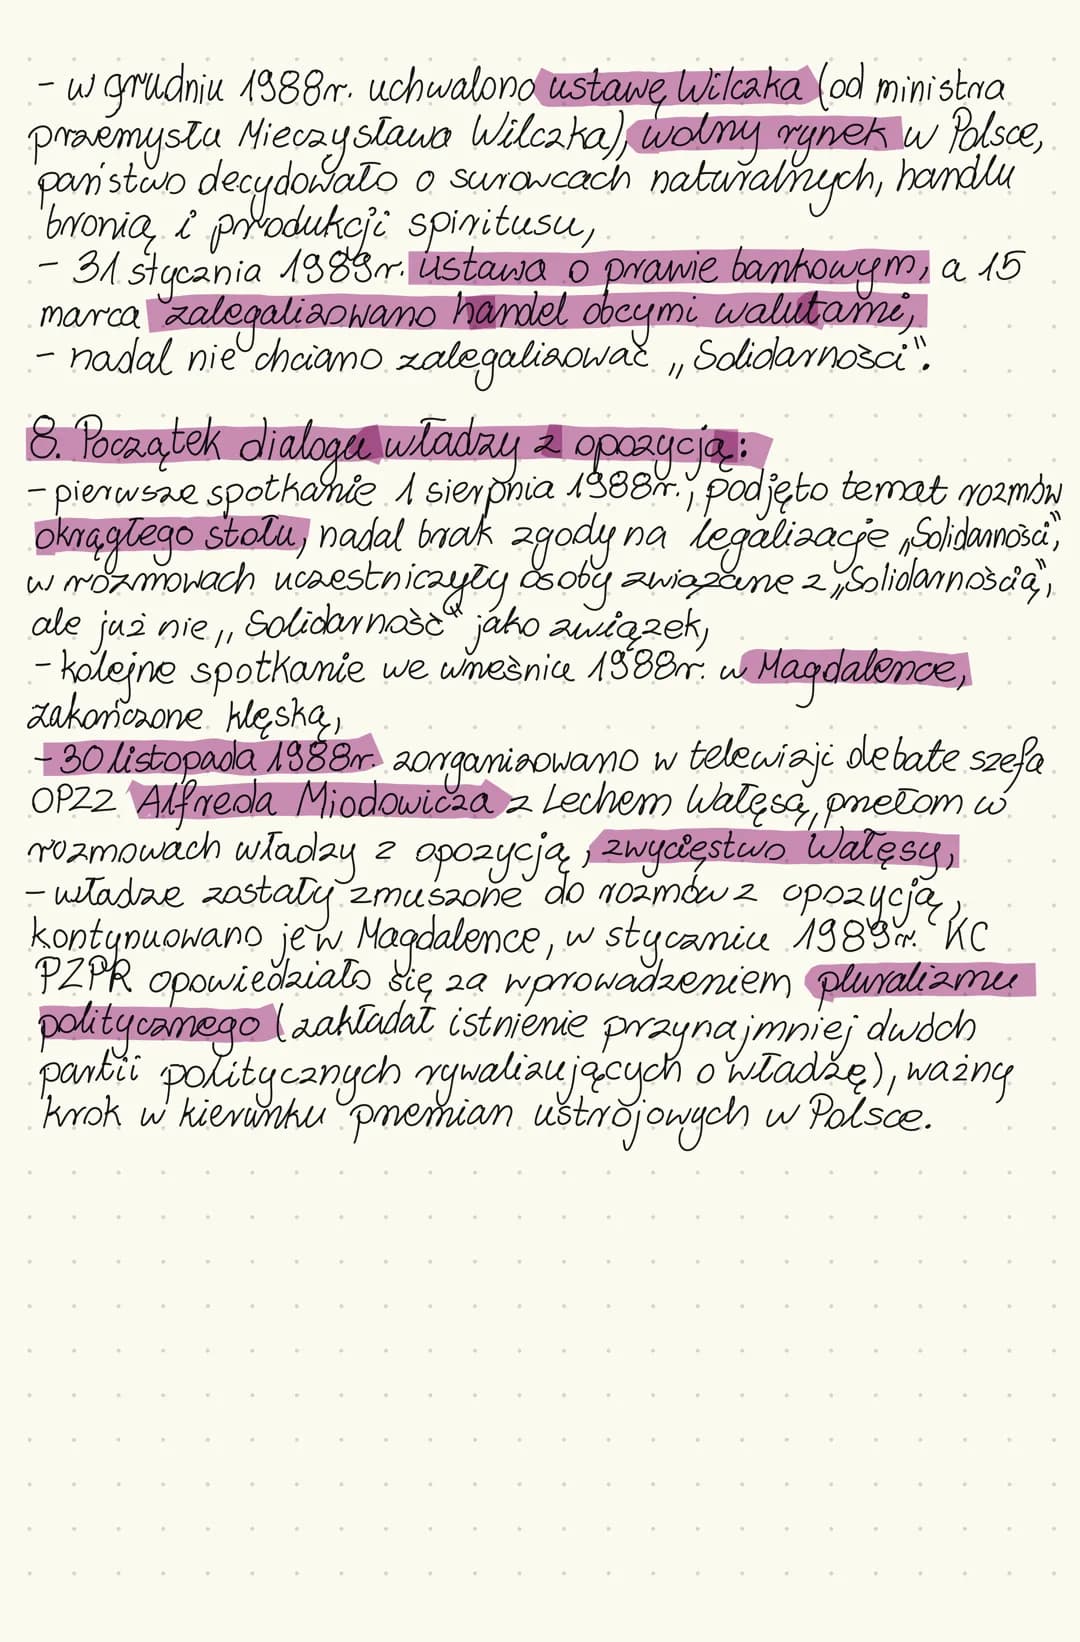 - w grudniu 1988r. uchwalono ustawę Wilczka (od ministra
przemysłu Mieczysława Wilczka), wolny rynek w Polsce,
państwo decydowało o surowcach naturalnych, handlu
bronią i produkcji spirytusu,
- 31 stycznia 1989r. ustawa o prawie bankowym, a 15
marca zalegalizowano handel obcymi walutami,
- nadal nie chciano zalegalizować „Solidarności".
8. Początek dialogu władzy z opozycją:
- pierwsze spotkanie 1 sierpnia 1988r., podjęto temat rozmów
okrągłego stołu, nadal brak zgody na legalizację „Solidarności",
w rozmowach uczestniczyły osoby związane z „Solidarnością",
ale już nie „Solidarność" jako związek,
- kolejne spotkanie we wrześniu 1988r. w Magdalence,
zakończone klęską,
- 30 listopada 1988r. zorganizowano w telewizji debate szefa
OPZZ Alfreda Miodowicza z Lechem Wałęsą, przełom w
rozmowach władzy z opozycją, zwycięstwo Wałęsy,
- władze zostały zmuszone do rozmów z opozycją,
kontynuowano je w Magdalence, w styczniu 1989r. KC
PZPR opowiedziało się za wprowadzeniem pluralizmu
politycznego (zakładał istnienie przynajmniej dwóch
partii politycznych rywalizujących o władzę), ważny
krok w kierunku przemian ustrojowych w Polsce.